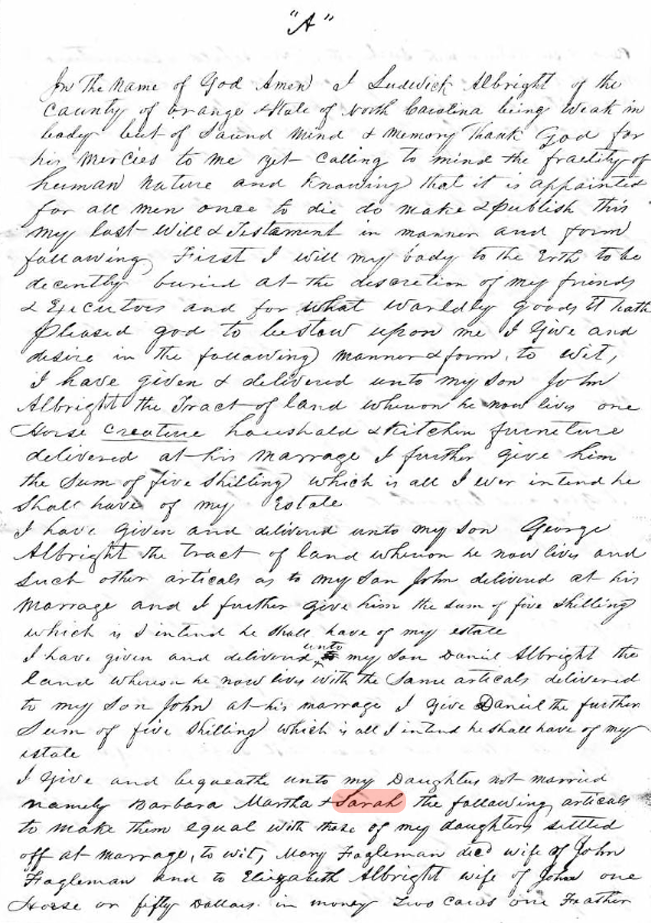 "A"
In the name of God Amen I Ludwick Albright of the
county of orange & State of North Carolina being weak in
body but of Sound Mind & Memory Thank God for
his Mercies to me yet calling to mind the fraility of
human Nature and Knowing that it is appointed
for all men once to die do make & publish this
my last Will & Testament in manner and form
following First I will my body to the Erth to be
decently buried at the discretion of my friends
& Executors and for what worldly goods it hath
Pleased god to bestow upon me I Give and
desire in the following manner & form, to wit,
I have given & delivered unto my son John
Albright the Tract of land whereon he now lives one
Horse creature household & Kitchin furneture
delivered at his Marriage I further give him
the Sum of five Shilling which is all I ever intend he
shall have of my Estate
I have given and delivered unto my son George
Albright the tract of land whereon he now lives and
such other articals as to my son John delivered at his
Marrage and I further give him the sum of five Shilling
which is I intend he shall have of my estate
I have given and delivered unto my son Daniel Albright the
land whereon he now lives with the Same articals delivered
to my son John at his marriage I Give Daniel the further
Sum of five Shilling which is all I intend he shall have of my
estate
I Give and bequeathe unto my Daughters not married
namely Barbara Martha & Sarah the following articals
to make them equal with those of my daughters settled
off at marriage, to wit, Mary Fogleman decd wife of John
Fogleman and to Elizabeth Albright wife of John one
Horse or fifty Dollars in money Two cows one Feather